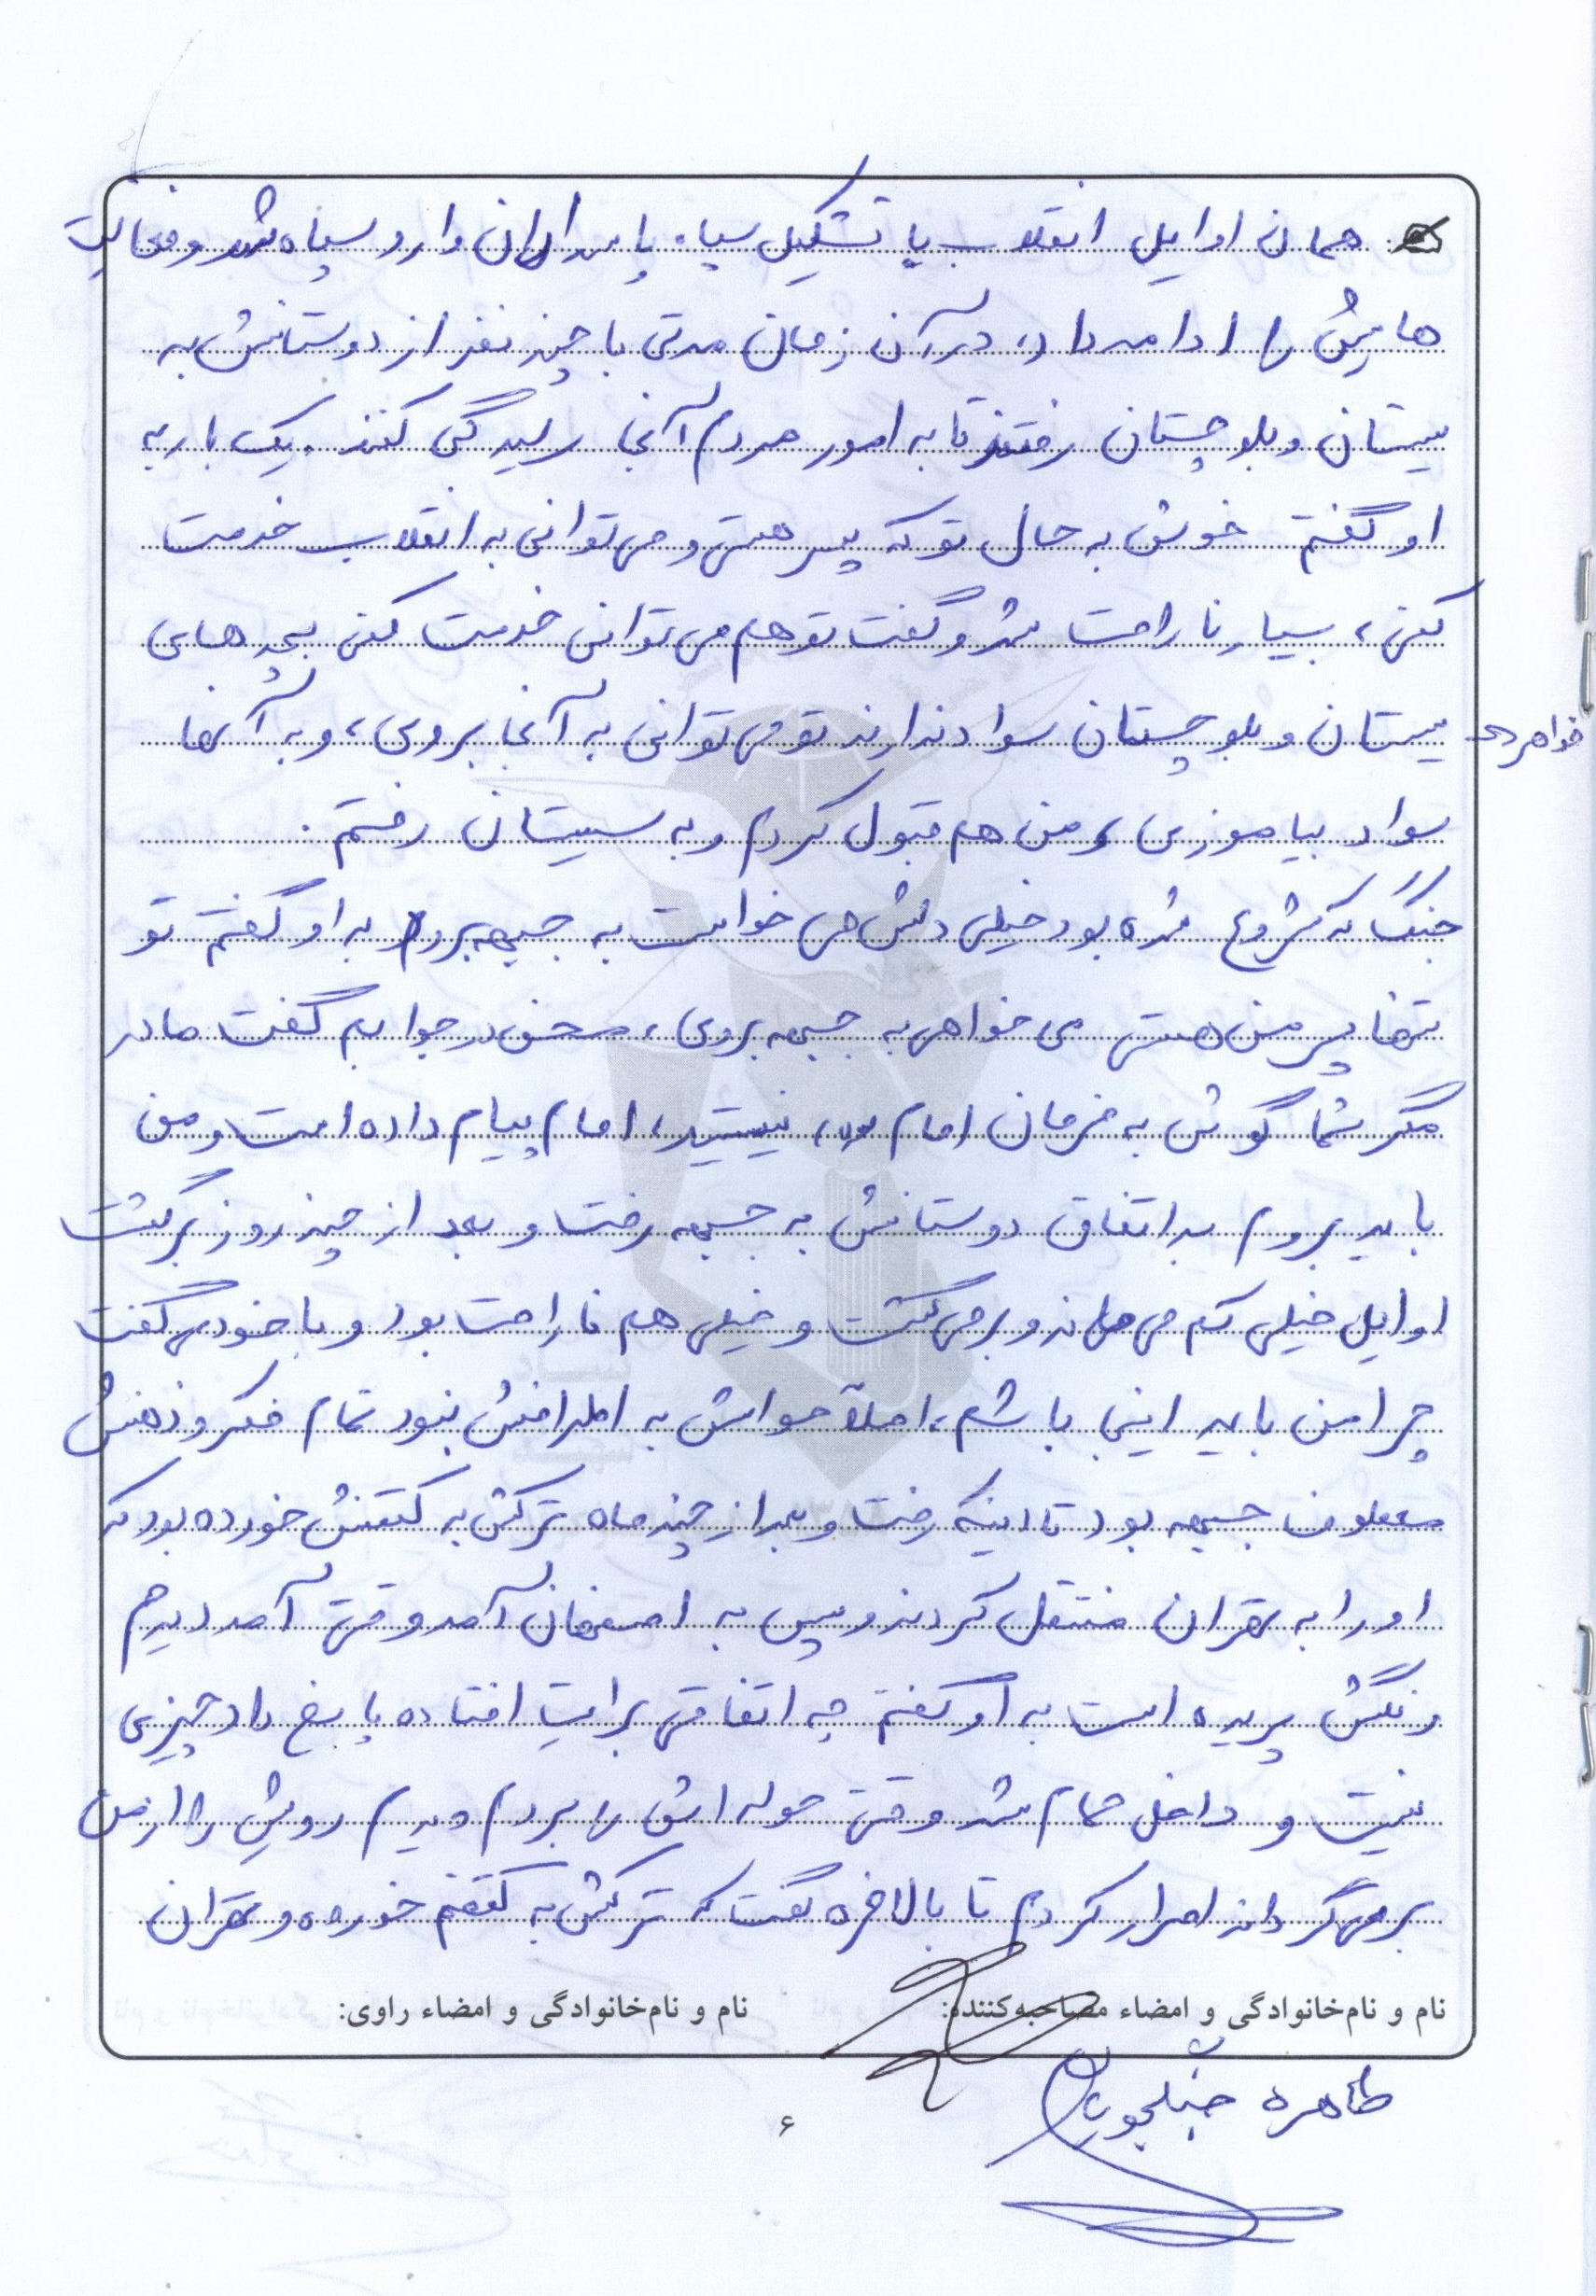 همان اوایل انقلاب با تشکیل سپاه پاسداران وارد سپاه شد و فعالیت
هایش را ادامه داد، در آن زمان مدتی با چند نفر از دوستانش به
سیستان و بلوچستان رفتند تا به امور مردم آنجا رسیدگی کنند. یک بار به
او گفتم خوش به حال تو که پسر هستی و می توانی به انقلاب خدمت
کنی، بسیار ناراحت شد و گفت تو هم می توانی خدمت کنی بچه های
سیستان و بلوچستان سواد ندارند تو می توانی به آنجا بروی، و به آنها
خواهر
سواد بیاموزی، و من هم قبول کردم و به سیستان رفتم.
جنگ که شروع شده بود خیلی دلش می خواست به جبهه برود به او گفتم تو
تنها پسر من هستی می خواهی به جبهه بروی، محسن در جوابم گفت مادر
مگر شما گوش به فرمان امام نیستید، امام پیام داده است و من
باید بروم به اتفاق دوستانش به جبهه رفت و بعد از چند روز برگشت
اوایل خیلی کم می ماند و بر می گشت و خیلی هم ناراحت بود و با خود می گفت
چرا من باید اینجا باشم، اصلاً حواسش به اطرافش نبود تمام فکر و ذهنش
معطوف جبهه بود تا اینکه رفت و بعد از چند ماه ترکش به کتفش خورده بود که
او را به تهران منتقل کردند و سپس به اصفهان آمد وقتی آمد دیدم
رنگش پریده است به او گفتم چه اتفاقی برایت افتاده پاسخ داد چیزی
نیست و داخل حمام شد وقتی حوله اش را بردم دیدم رویش را از من
برمی گرداند اصرار کردم تا بالاخره گفت که ترکش به کتفم خورده و تهران
نام و نام‌خانوادگی و امضاء مصاحبه‌کننده:
نام و نام‌خانوادگی و امضاء راوی:
طاهره جنگجویان
۶